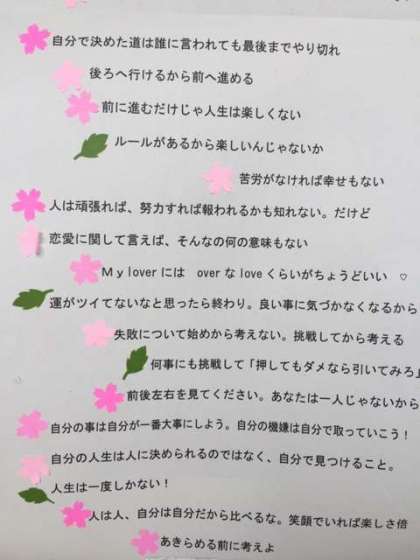 自分で決めた道は誰に言われても最後までやり切れ
後ろへ行けるから前へ進める
前に進むだけじゃ人生は楽しくない
ルールがあるから楽しいんじゃないか
苦労がなければ幸せもない
人は頑張れば、努力すれば報われるかも知れない。だけど
恋愛に関して言えば、そんなの何の意味もない
Ｍｙ lover には over な love くらいがちょうどいい ♡
運がツイてないなと思ったら終わり。良い事に気づかなくなるから
失敗について始めから考えない。挑戦してから考える
何事にも挑戦して「押してもダメなら引いてみろ」
前後左右を見てください。あなたは一人じゃないから
自分の事は自分が一番大事にしよう。自分の機嫌は自分で取っていこう！
自分の人生は人に決められるのではなく、自分で見つけること。
人生は一度しかない！
人は人、自分は自分だから比べるな。笑顔でいれば楽しさ倍
あきらめる前に考えよ